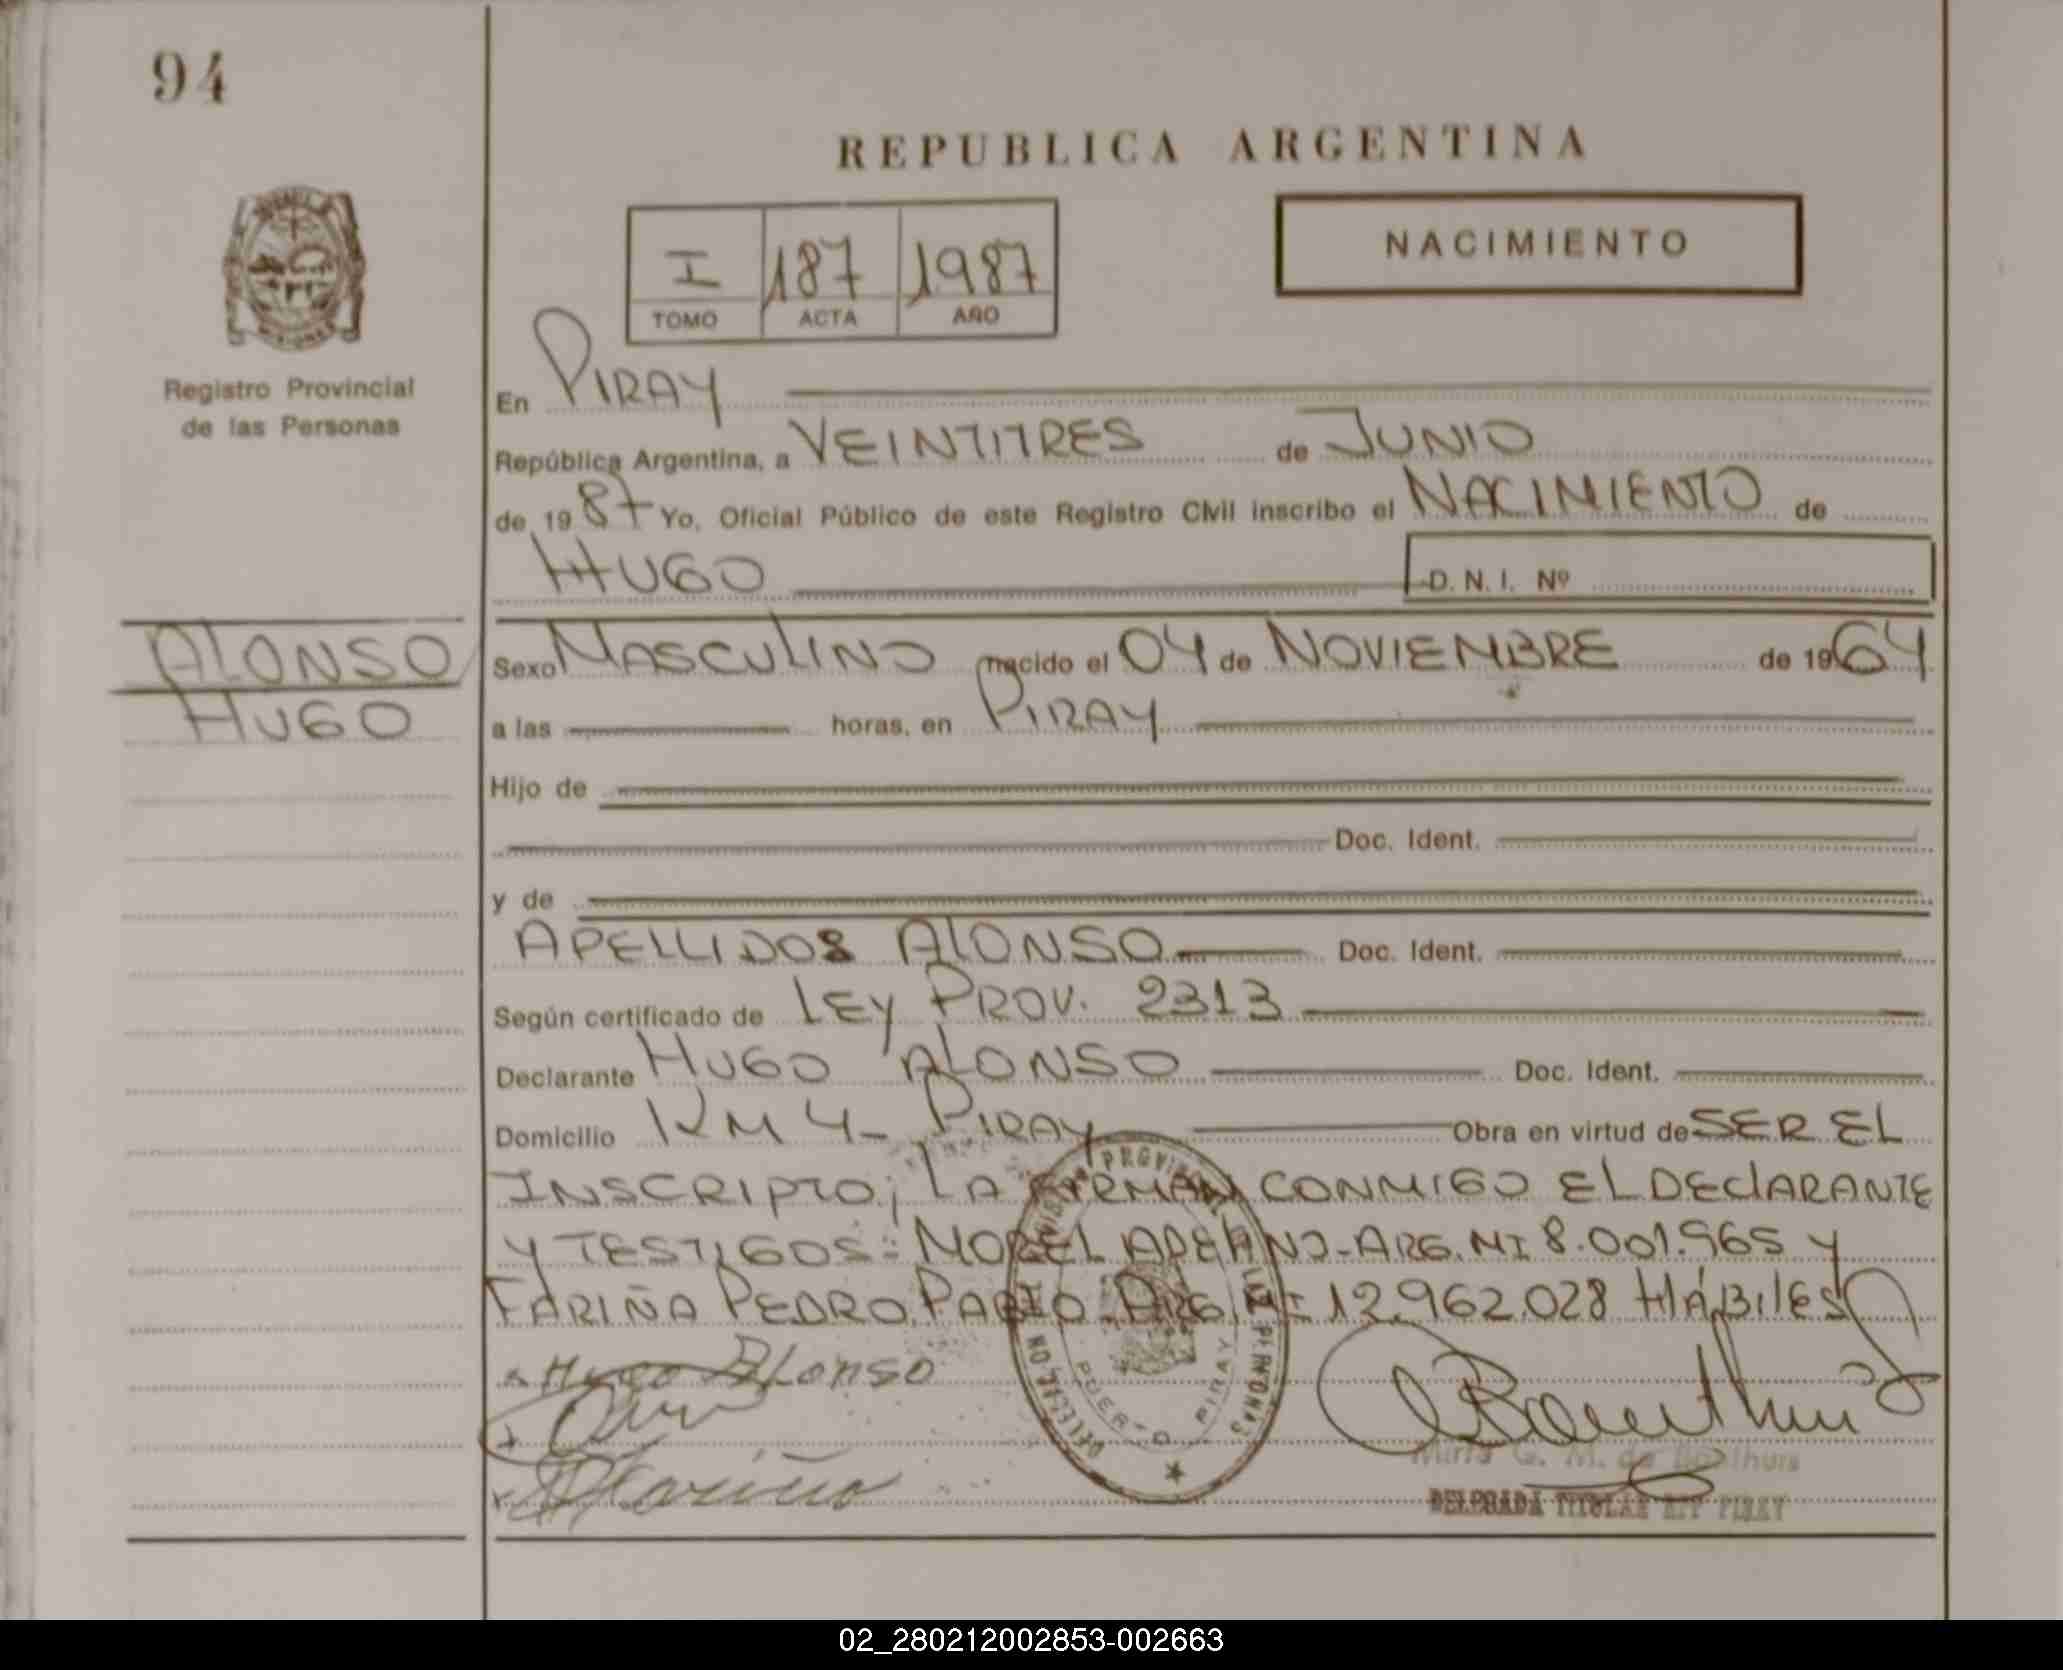 94
REPUBLICA ARGENTINA
I 187 1987
TOMO ACTA AÑO
NACIMIENTO
Registro Provincial
de las Personas
En PIRAY
República Argentina, a VEINTITRES de JUNIO
de 1987 Yo, Oficial Público de este Registro Civil inscribo el NACIMIENTO de
HUGO D. N. I. Nº
ALONSO
HUGO
Sexo MASCULINO nacido el 04 de NOVIEMBRE de 1964
a las horas, en PIRAY
Hijo de
Doc. Ident.
y de
APELLIDOS ALONSO Doc. Ident.
Según certificado de LEY PROV. 2313
Declarante HUGO ALONSO Doc. Ident.
Domicilio KM 4 - PIRAY Obra en virtud de SER EL
INSCRIPTO; LA FIRMAN CONMIGO EL DECLARANTE
Y TESTIGOS: MOREL ADELINO - ARG. MI 8.001.965 Y
FARIÑA PEDRO PABLO ARG. MI 12.962.028 HÁBILES
x Hugo Alonso
PUERTO PIRAY
Mirta G. M. de
DELEGADA TITULAR PIRAY
02_280212002853-002663